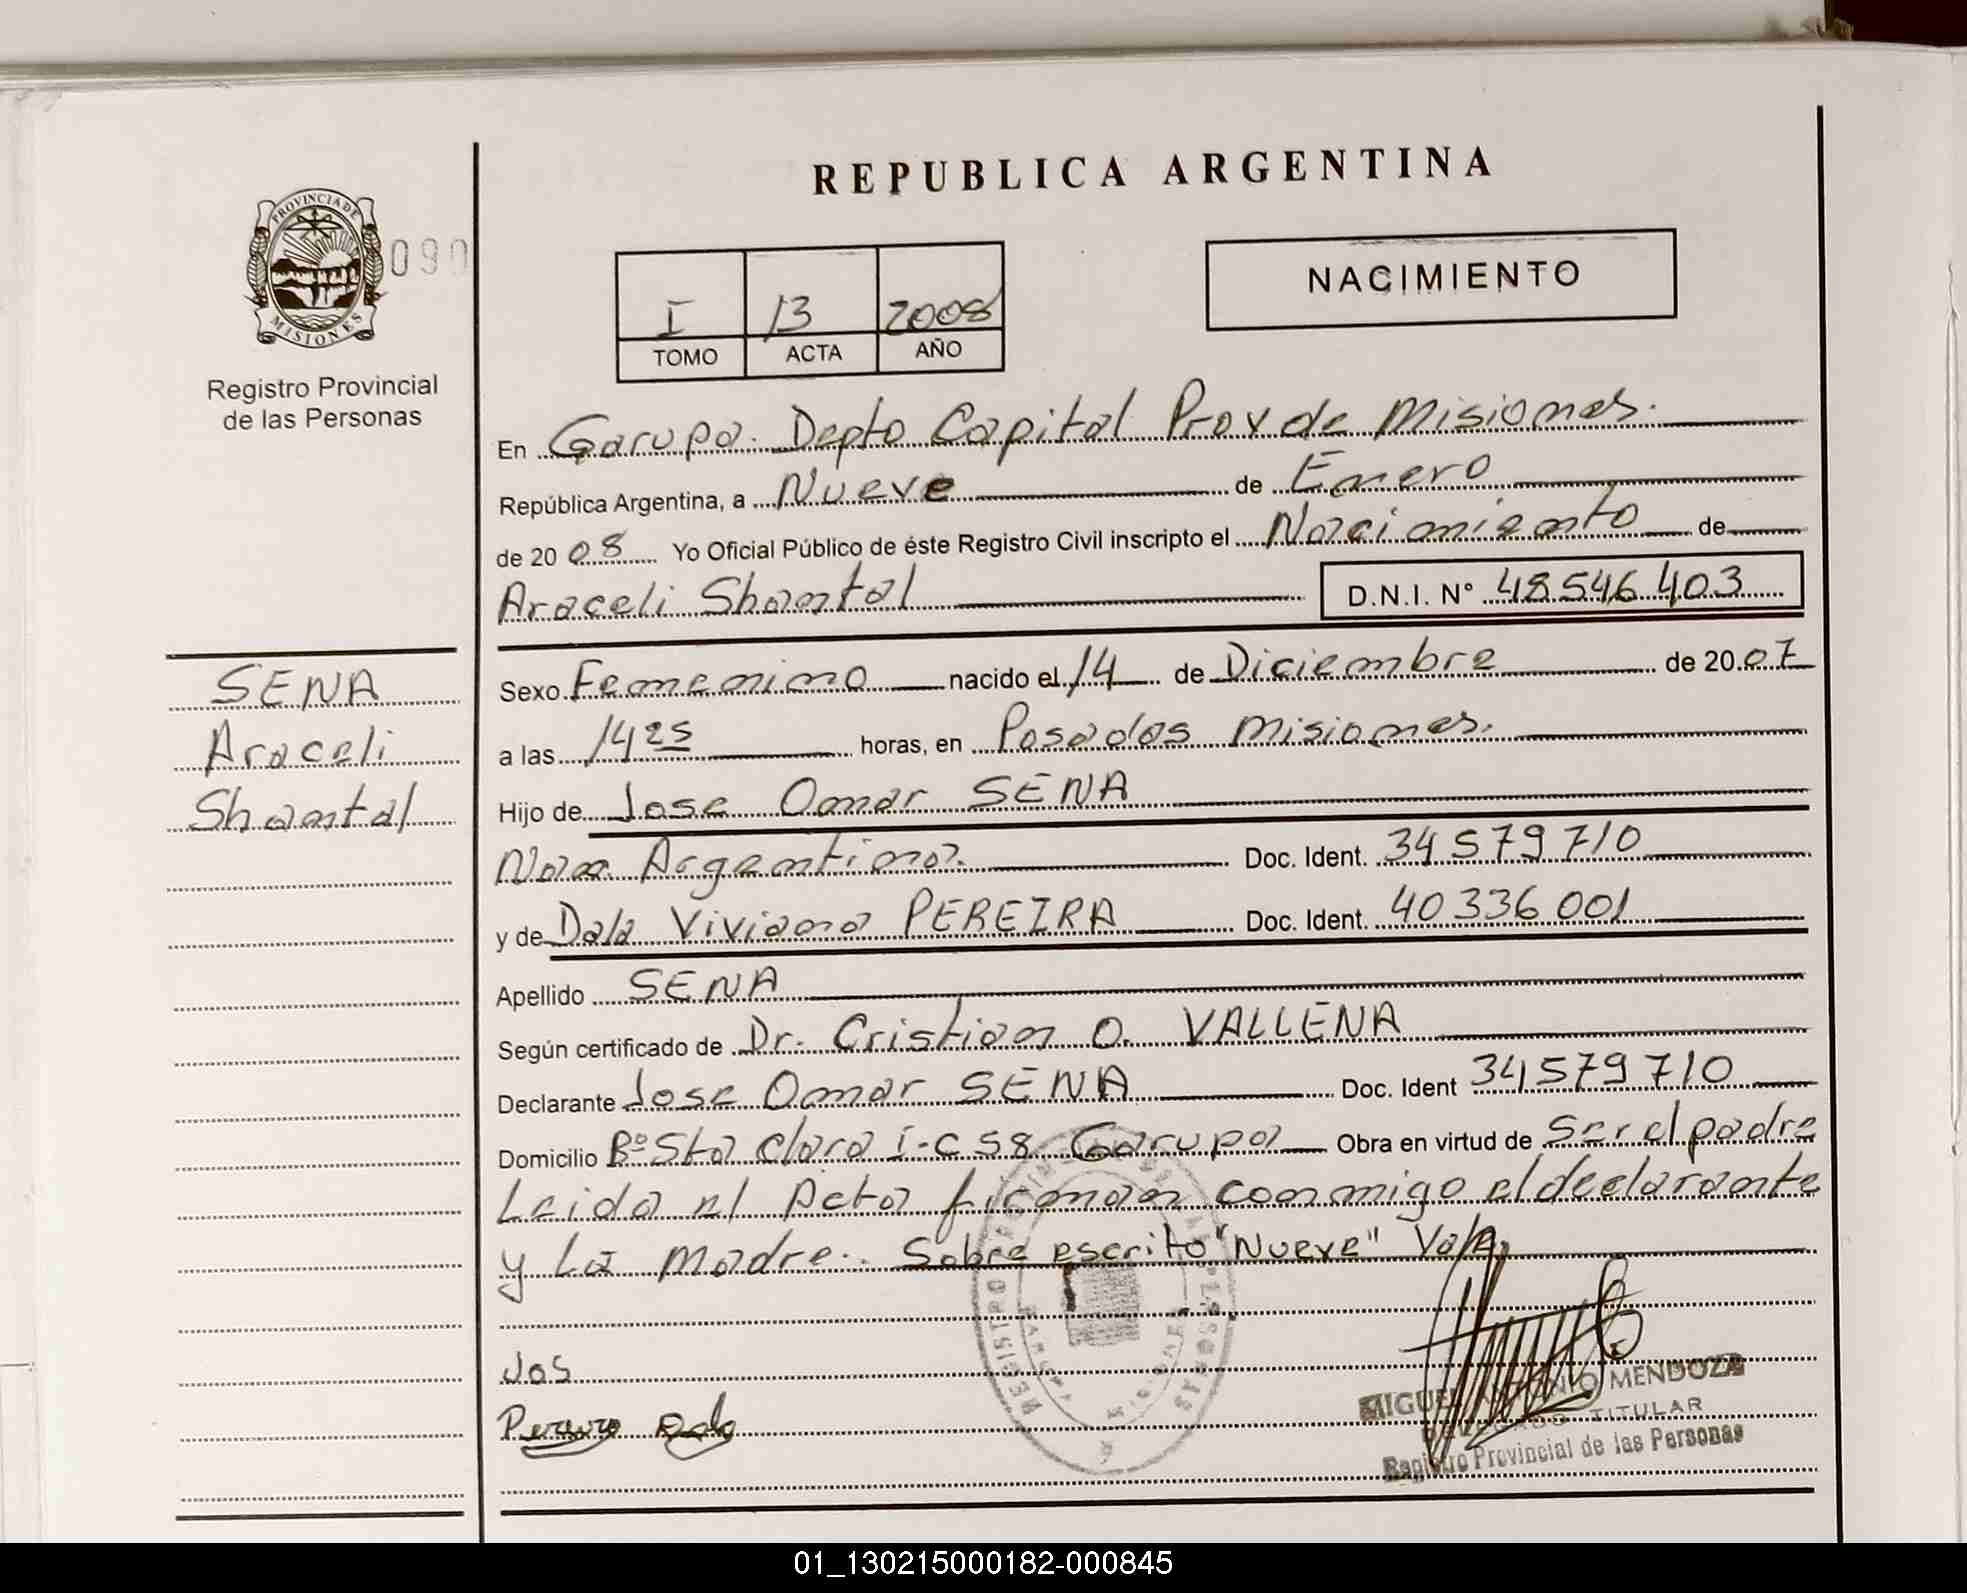 REPUBLICA ARGENTINA
PROVINCIA DE
MISIONES
090
Registro Provincial
de las Personas
I 13 2008
TOMO ACTA AÑO
NACIMIENTO
En Garupa. Depto Capital Prov de Misiones.
República Argentina, a Nueve de Enero
de 20 08 Yo Oficial Público de éste Registro Civil inscripto el Nacimiento de
Araceli Shantal D.N.I. N° 48 546 403
SENA
Araceli
Shantal
Sexo Femenino nacido el 14 de Diciembre de 20 07
a las 14 25 horas, en Posadas Misiones.
Hijo de Jose Omar SENA
Nac. Argentina. Doc. Ident. 34 579 710
y de Dala Viviana PEREIRA Doc. Ident. 40 336 001
Apellido SENA
Según certificado de Dr. Cristian O. VALLENA
Declarante Jose Omar SENA Doc. Ident 34 579 710
Domicilio B° Sta Clara I-C 58 Garupa Obra en virtud de Ser el padre
Leida el Acta firman conmigo el declarante
y La Madre. Sobre escrito "Nueve" Vale,
Jos
Dala
MIGUEL ANTONIO MENDOZA
DELEGADO TITULAR
Registro Provincial de las Personas
01_130215000182-000845